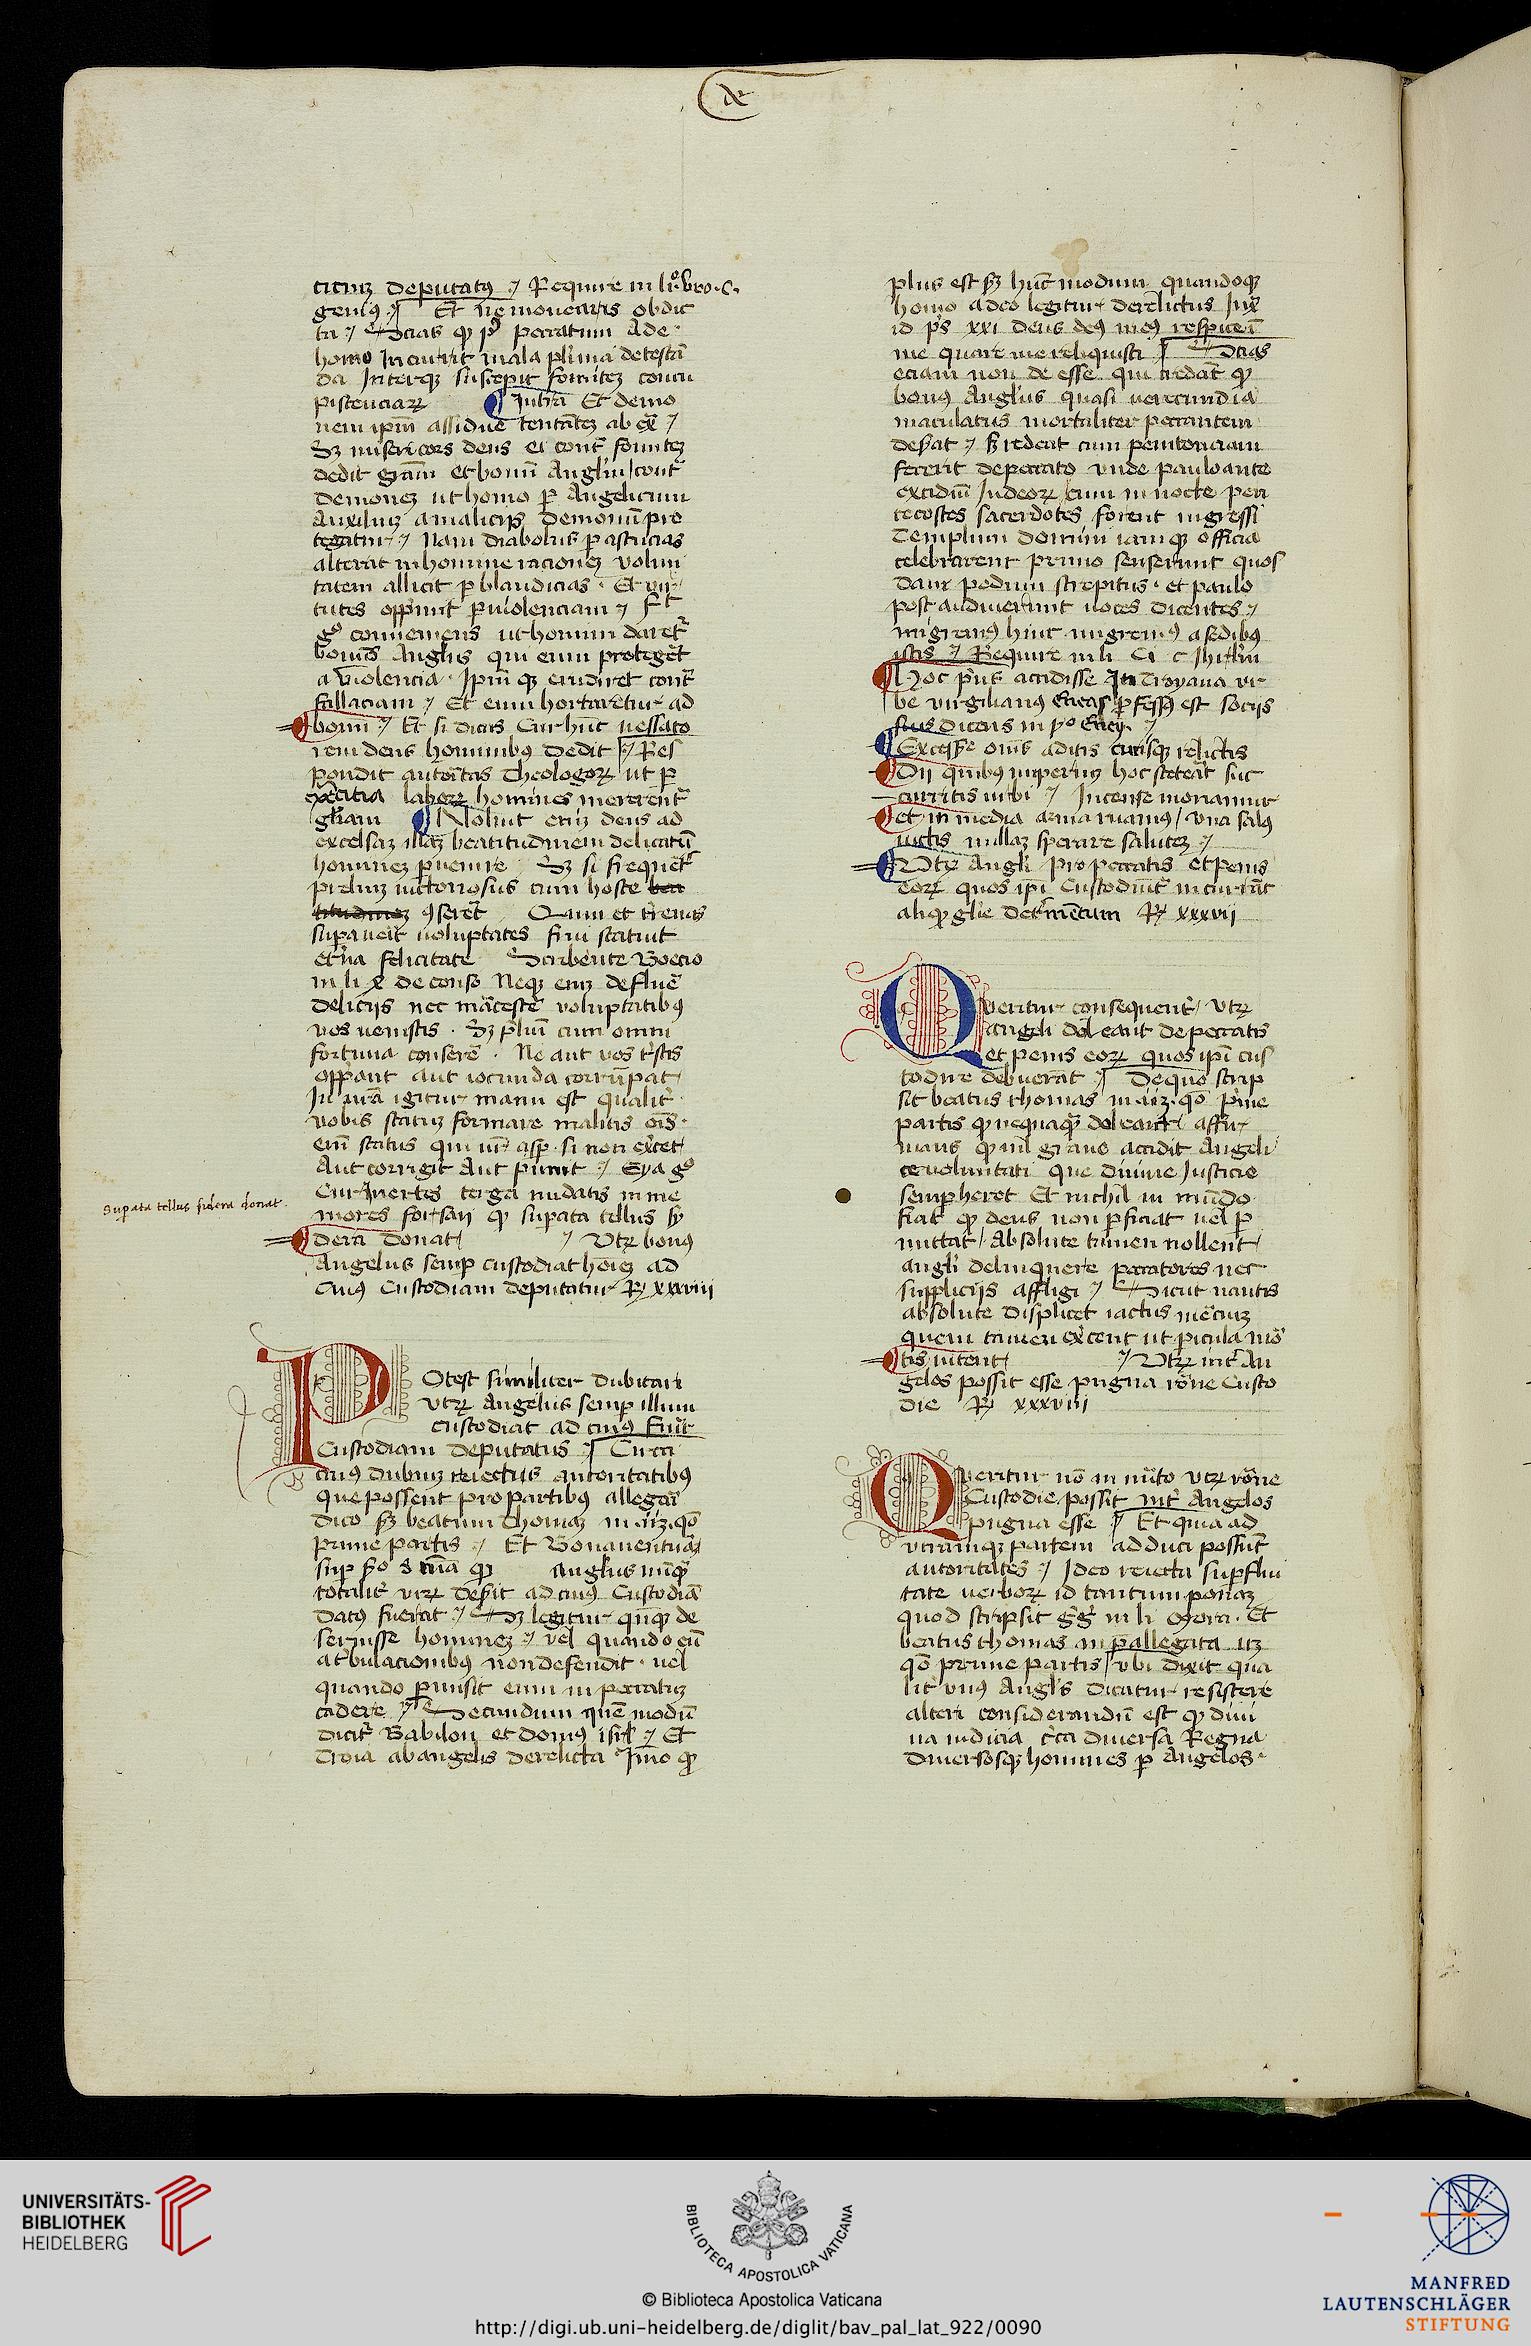 de
titiuz deputatus Require in li vro c
genius Et ne mouearis obdic
ta Scias q post peccatum Ade
homo Incurrit mala plima detestan
da Interq suscepit fomitez concu
pistenciarz Iniuria Et demo
nem ipm assidue tentatez ab ex
Sz misericors deus ei cont fomitez
dedit gram et bonu Anglm cont
demonez ut homo p Angelicum
Auxiluz a maliciis demonu pro
tegatur Nam diabolus p astucias
alterat in homine racionez volun
tatem allicit p blandicias Et vir
tutes opprimit p violenciam Fit
go conueniens ut homini daretr
bonus Anglus qui eum protegeret
a violencia Ipm q erudiret cont
fallaciam Et eum hortaretur ad
bonu Et si dicas Cur hunc uessato
rem deus hominibus dedit Res
pondit autoritas theologorz ut p
exercitia laborz homines mererent
gliam Noluit eniz deus ad
excelsaz illaz beatitudinem delicatu
hominez puenire Sz si frequeter
preliuz uictoriosus cum hoste bea
titudinez 9seret Quin et trenas
supauerit uoluptates frui statuit
etna felicitate Scribente Boecio
in li x de conso Neq eniz defluere
deliciis nec marcescere voluptatibus
vos uenistis Sz preliu cum omni
fortuna conserere Ne aut vos tristis
opprimat aut iocunda corrumpat
In ura igitur manu est qualiter
uobis statuz formare malitis ois
eni status qui uidetur asp si non exercet
Aut corrigit Aut punit Eya go
Cur Inertes terga nudatis in me
mores forsan q supata tellus sy
dera donat Utrz bonus
Angelus semp custodiat hoiez ad
Cuius Custodiam deputatur R xxxviii
supata tellus sidera donat
Potest similiter dubitari
utrz Angelus semp illum
custodiat ad cuius fuit
Custodiam deputatus Circa
cuius dubiuz reiectis autoritatibus
que possent pro partibus allegari
dico sz beatum Thomaz in iiz qo
prime partis Et Bonauentura
sup so q anglus nuq
totaliter virz deserit ad cuius Custodia
datus fuerat Sz legitur qnq de
seruisse hominez vel quando eu
a tribulacionibus non defendit uel
quando pmisit eum in peccatuz
cadere Secundum que modu
dicit Babilon et domus isrl Et
Troia ab angelis derelicta Imo q
plus est sz hunc modum quandoq
homo adeo legitur derelictus Iux
id ps xxi deus deus meus respice i
me quare me reliquisti Scias
eciam non de esse qui credat q
bonus Anglus quasi uerecundia
maculatus mortaliter peccantem
deserat sz redeat cum penitenciam
fecerit de peccato unde paulo ante
excidiu Iudeorz cum in nocte pen
tecostes sacerdotes forent ingressi
Templum domini iamq officia
celebrarent primo senserunt quos
dam pedum strepitus et paulo
post audiuerunt uoces dicentes
migremus hinc migremus a sedibus
istis Require in li
Hoc prius accidisse In Troyana ur
be virgilianus Eneas pfessus est sociis
suis dicens in po Eney
Excesse omnis aditis arisq relictis
Dii quibus imperiuz hoc steterat suc
curritis urbi Incense moriamur
et in media arma ruamus una salus
uictis nullaz sperare salutez
Utrz Angli pro peccatis et penis
eorz quos ipi Custodiunt incurrant
aliquod glie detrimentum R xxxvii
Queritur consequenter Utrz
angeli doleant de peccatis
et penis eorz quos ipi cus
todire debuerant De quo scrip
sit beatus thomas in iiz qo prime
partis q nequaq doleant affir
mans q nil graue accidit Angeli
ce uoluntati que diuine Iusticie
semp heret Et nichil in mundo
fiat q deus non pficiat uel p
mittat Absolute tamen nollent
angli delinquere peccatores nec
suppliciis affligi Sicut nautis
absolute displicet iactus merciuz
quem tamen exercent ut picula mor
tis uitent Utrz inter An
gelos possit esse pugna rone Custo
die R xxxviii
Queritur non in merito utrz rone
Custodie possit inter Angelos
pugna esse Et quia ad
utramq partem adduci possunt
autoritates Ideo reiecta supflui
tate uerborz id tantum ponaz
quod scripsit greg in li Mora Et
beatus thomas in pallegata iiz
qo prime partis ubi dixit qua
liter unus Anglus dicatur resistere
alteri considerandu est q diui
na iudicia circa diuersa Regna
diuersosq homines p Angelos
UNIVERSITÄTS-
BIBLIOTHEK
HEIDELBERG
BIBLIOTECA APOSTOLICA VATICANA
© Biblioteca Apostolica Vaticana
http://digi.ub.uni-heidelberg.de/diglit/bav_pal_lat_922/0090
MANFRED
LAUTENSCHLÄGER
STIFTUNG